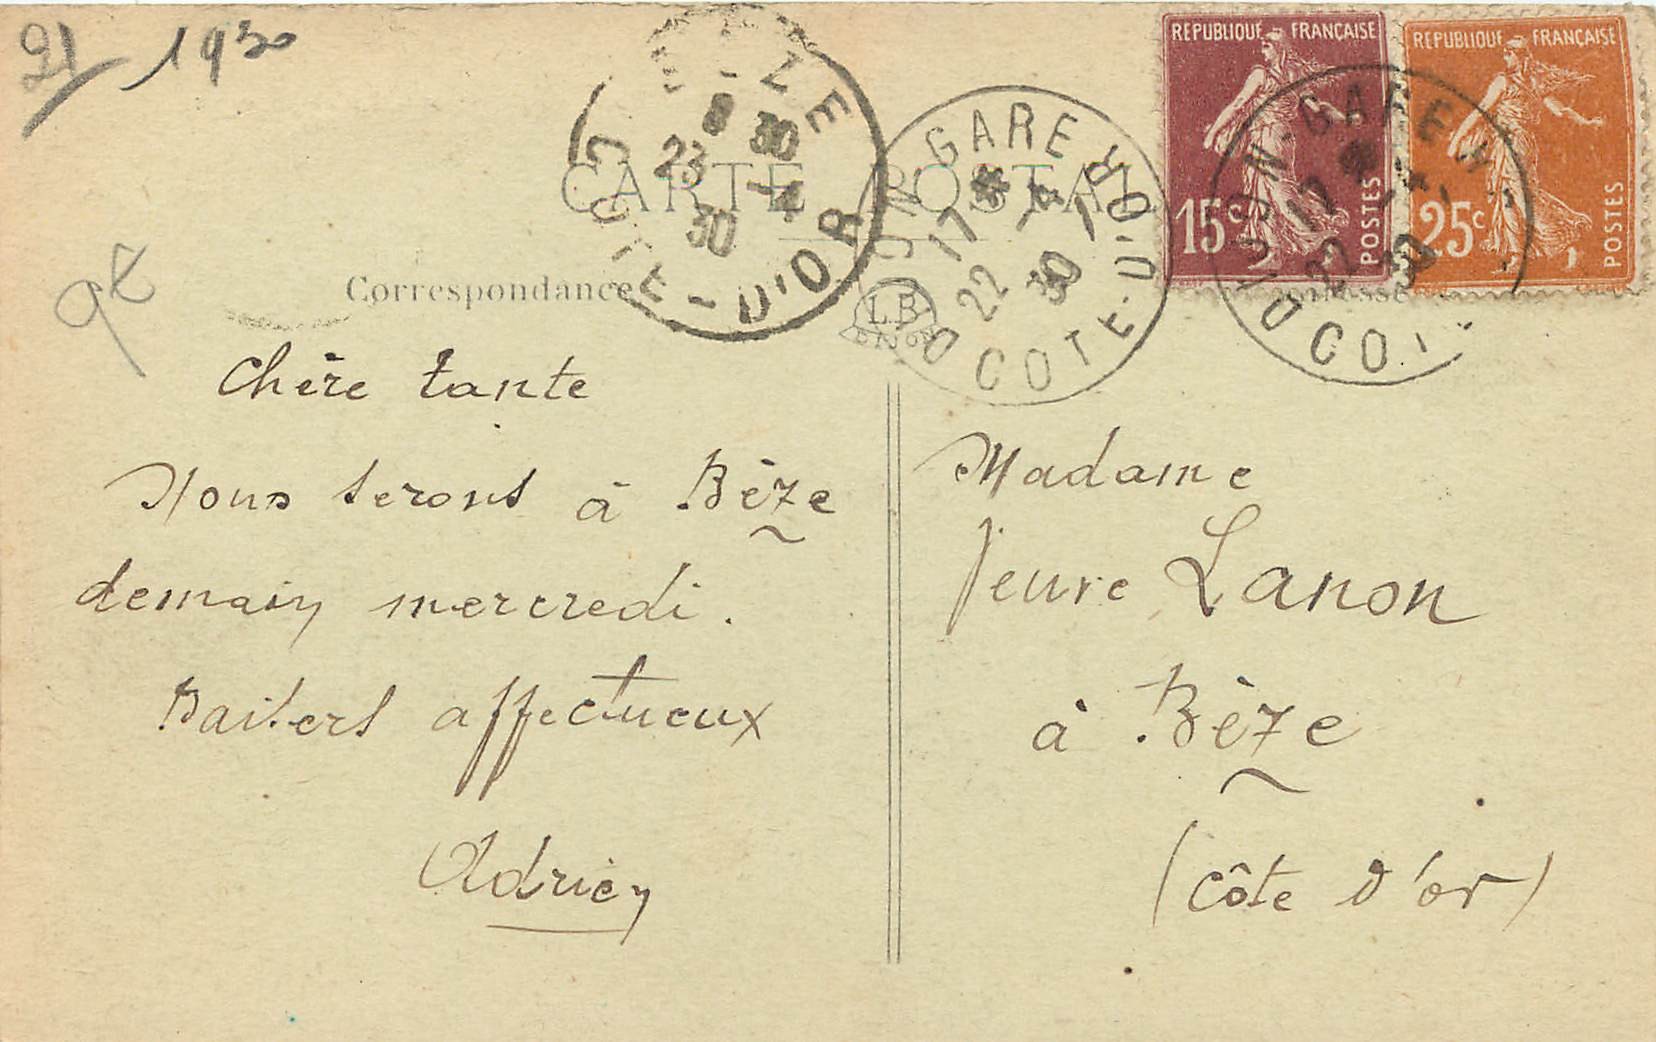 21
1930
CARTE POSTALE
Correspondance
L.B
DIJON
BEZE
8 30
23 -4
30
COTE-D'OR
DIJON-GARE
17 * -4
22 30
COTE-D'OR
REPUBLIQUE FRANÇAISE
15c
POSTES
REPUBLIQUE FRANÇAISE
25c
POSTES
DIJON-GARE
17 * -4
22 30
COTE
Chère tante
Nous serons à Bèze
demain mercredi.
Baisers affectueux
Adrien
Madame
Veuve Lanon
à Bèze
(Côte d'or)